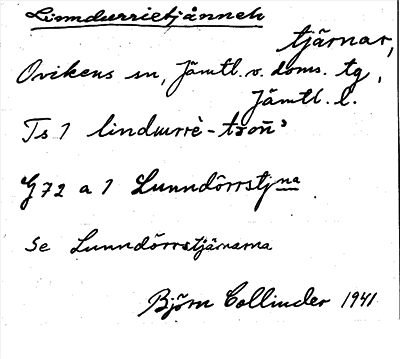 Linndurrietjånneh
tjärnar,
Ovikens sn, Jämtl. v. doms. tg,
Jämtl. l.
Ts 1 lindwrrè-
G 72 a 1 Lunndörrstjna
Se Lunndörrstjärnarna
Björn Collinder 1941